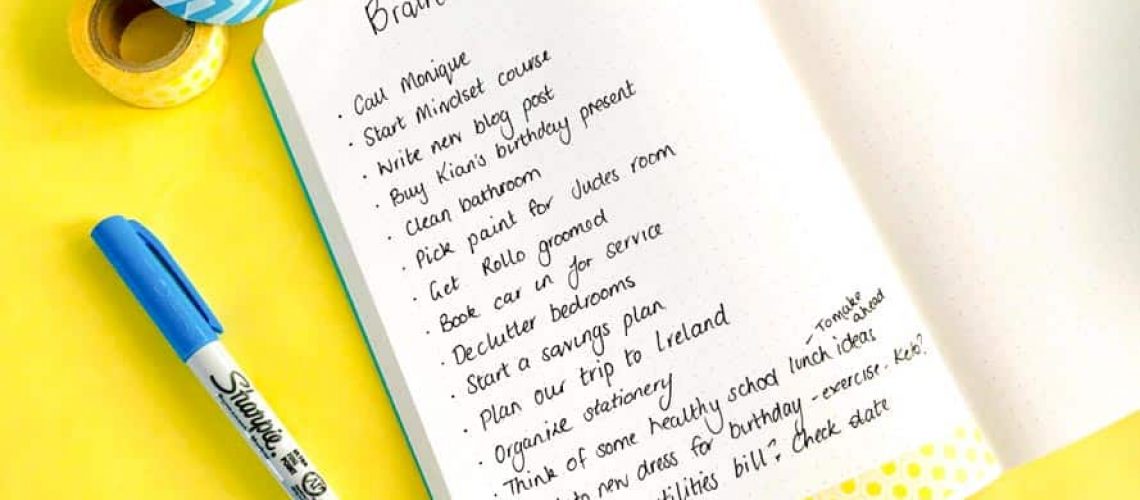 Brain
· Call Monique
· Start Mindset course
· Write new blog post
· Buy Kian's birthday present
· Clean bathroom
· Pick paint for Judes room
· Get Rollo groomed
· Book car in for service
· Declutter bedrooms
· Start a savings plan
· Plan our trip to Ireland
· Organize stationery
· Think of some healthy school lunch ideas - To make ahead
new dress for birthday - exercise - Keto?
bill? Check date
Sharpie